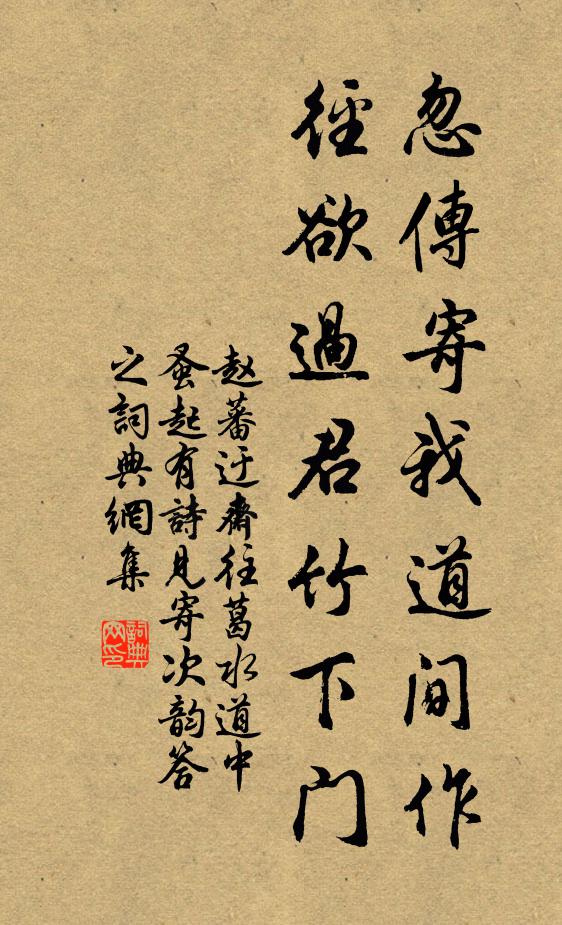 忽傳寄我道间作
徑欲過君竹下门
赵蕃迂齋往葛水道中
蚤起有詩見寄次韵答
之詞典網集
詞典
网印